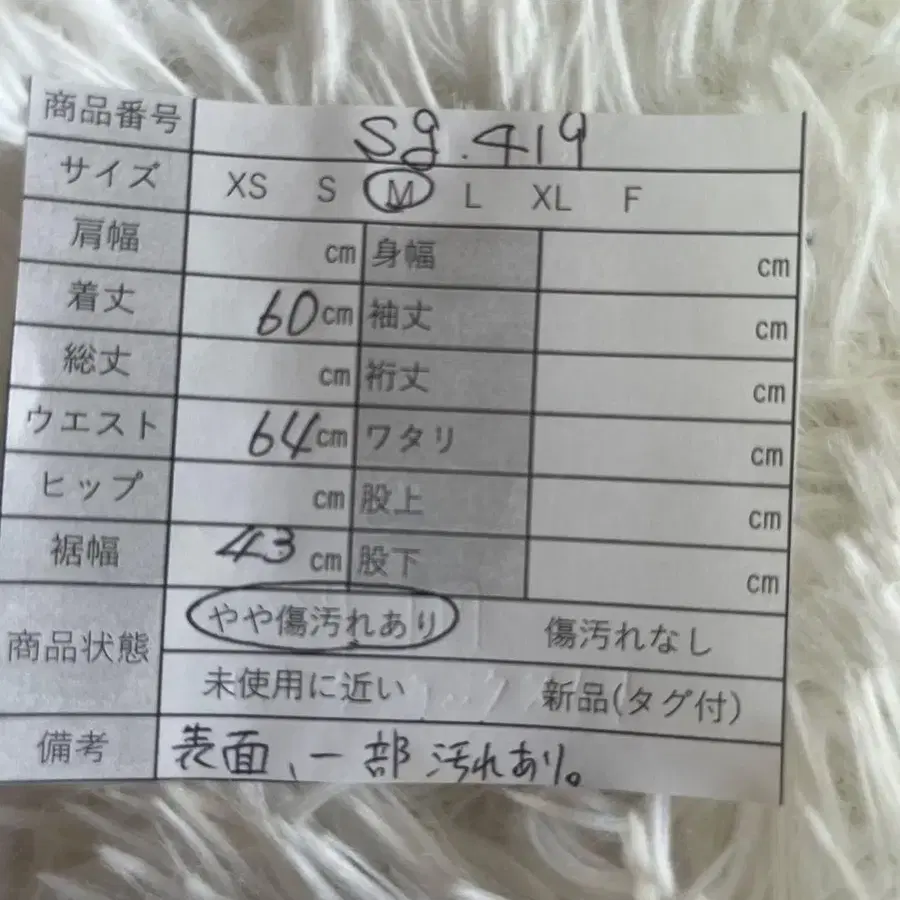 商品番号 Sg.419
サイズ XS S M L XL F
肩幅 cm 身幅 cm
着丈 60cm 袖丈 cm
総丈 cm 裄丈 cm
ウエスト 64cm ワタリ cm
ヒップ cm 股上 cm
裾幅 43cm 股下 cm
商品状態 やや傷汚れあり 傷汚れなし
未使用に近い 新品(タグ付)
備考 表面、一部汚れあり。